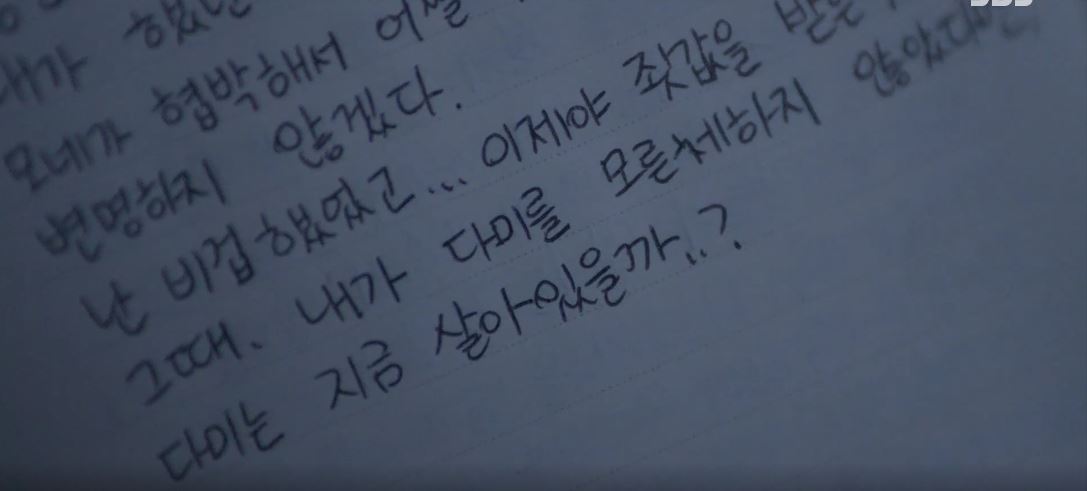 내가
모네가 협박해서
변명하지 않겠다.
난 비겁했었고... 이제야 죗값을
그때. 내가 다미를 모른체하지 않았다면,
다미는 지금 살아있을까..?